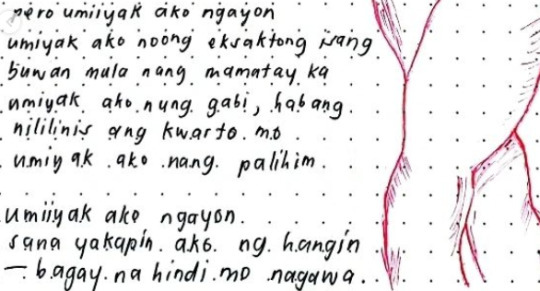 pero umiiyak ako ngayon
umiyak ako noong eksaktong isang
buwan mula nang mamatay ka
umiyak ako nung gabi, habang
nililinis ang kwarto mo
umiyak ako nang palihim.
umiiyak ako ngayon.
sana yakapin ako ng hangin
— bagay na hindi mo nagawa.